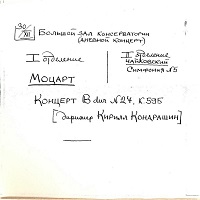 30/XII Большой зал консерватории
(дневной концерт)
I отделение
Моцарт
II отделение
Чайковский
Симфония №5
Концерт B dur №27, K 595
[Дирижер Кирилл Кондрашин]